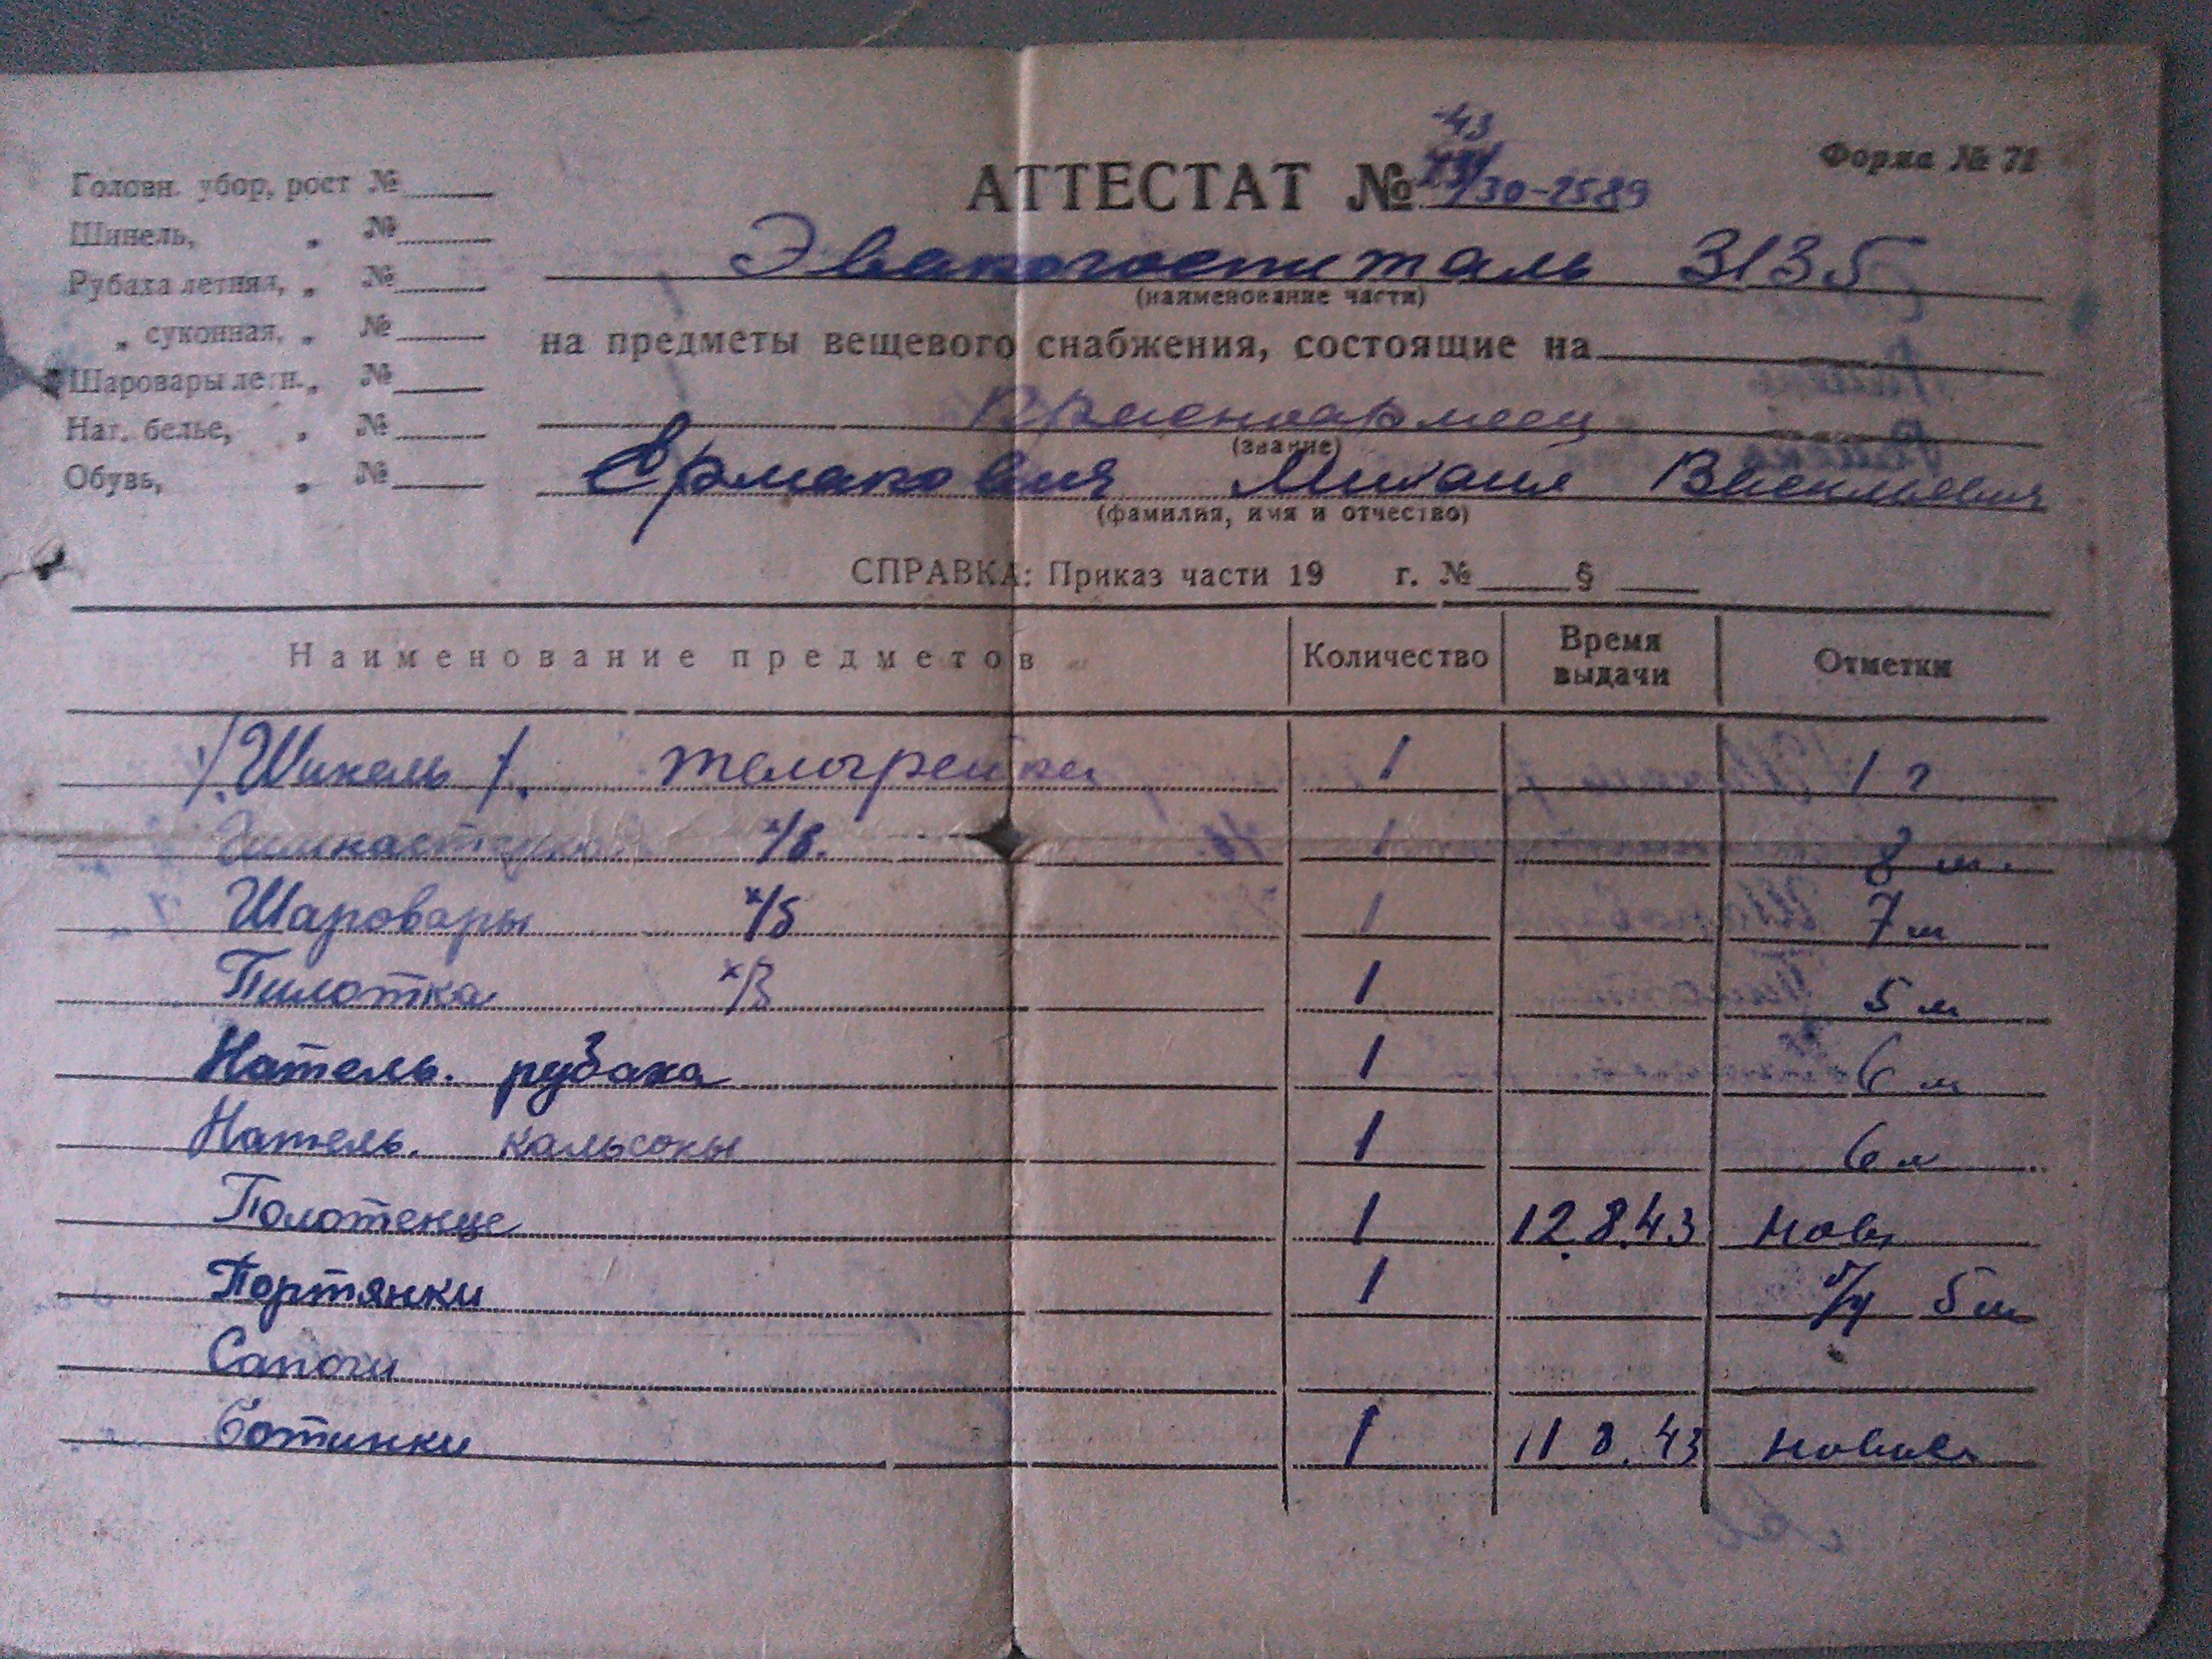 Форма № 72
-43
АТТЕСТАТ № /30-2589
Эвакогоспиталь 3135
(наименование части)
на предметы вещевого снабжения, состоящие на
Красноармеец
(звание)
Ермакович Михаил Васильевич
(фамилия, имя и отчество)
Головн. убор, рост №
Шинель, „ №
Рубаха летняя, „ №
„ суконная, „ №
Шаровары летн. „ №
Наг. белье, „ №
Обувь, „ №
СПРАВКА: Приказ части 19 г. № §
Наименование предметов Количество Время выдачи Отметки
/Шинель/. телогрейка 1 1 г
Гимнастерка х/б. 1 8 м.
Шаровары х/б 1 7 м
Пилотка х/б 1 5 м
Натель. рубаха 1 6 м
Натель. кальсоны 1 6 м
Полотенце 1 12.8.43 нов
Портянки 1 б/у 5 м
Сапоги
Ботинки 1 11 8.43 новые